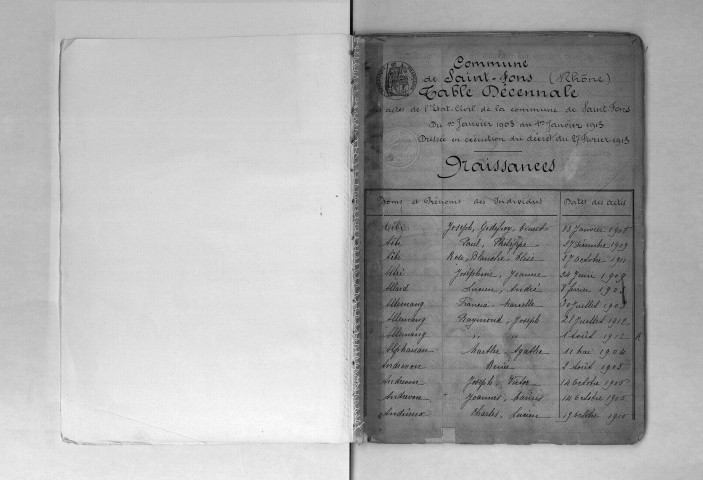 Commune
de Saint-Fons (Rhône)
Table Décennale
actes de l'Etat-Civil de la commune de Saint Fons
Du 1er Janvier 1903 au 1er Janvier 1913
Dressée en exécution du décret du 27 février 1913
Naissances
Noms et Prénoms des Individus Dates des actes
Joseph, Godefroy, 23 Janvier
Paul, Philippe 27 Décembre 1909
Rose, Blanche, 27 Octobre
Joséphine, Jeanne 24 Juin 1909
Allard Lucien, André février 1903
Allemang Francia Marcelle 30 Juillet
Allemang Raymond, Joseph 21 Juillet 1912
Allemang " " 1 Août 1912
Alphanson Marthe, Agathe 11 Mai 1904
Andrevon 2 Août 1903
Andrevon Joseph, Victor 14 Octobre 1905
Andrevon Joannès, Marius 14 Octobre 1905
Andrieux Charles, Lucien 19 Octobre 1910